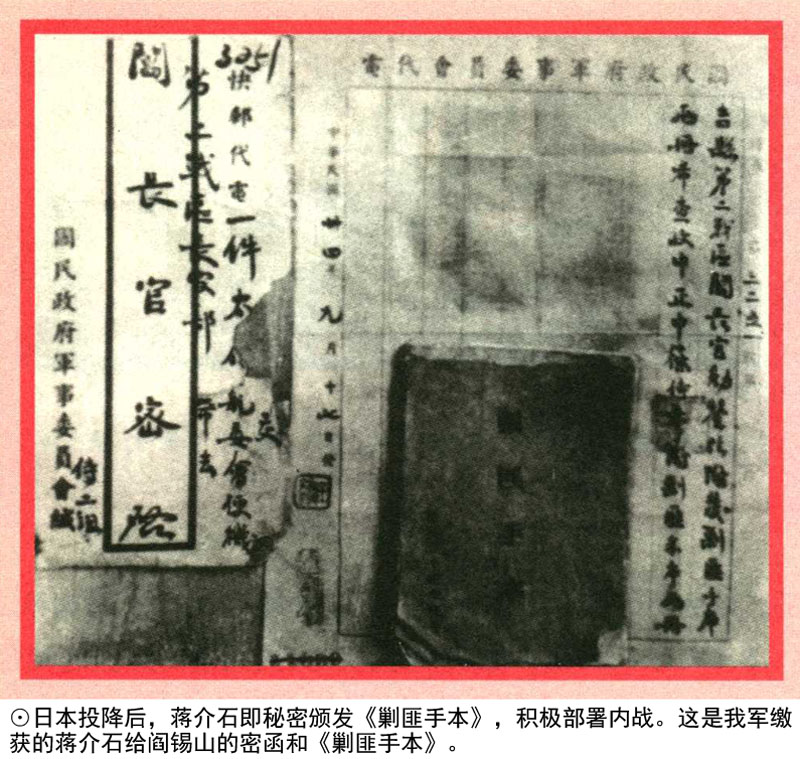 國民政府軍事委員會代電
吉縣第二戰區閻長官勛鑒玆附發剿匪手本
兩冊希查收中正申篠侍附剿匪手本兩冊
中華民國卅四年九月十七日發
3251
快郵代電一件 交航委會便機
第二戰區長官部
閻長官密啓
國民政府軍事委員會緘
⊙日本投降后，蒋介石即秘密颁发《剿匪手本》，积极部署内战。这是我军缴
获的蒋介石给阎锡山的密函和《剿匪手本》。